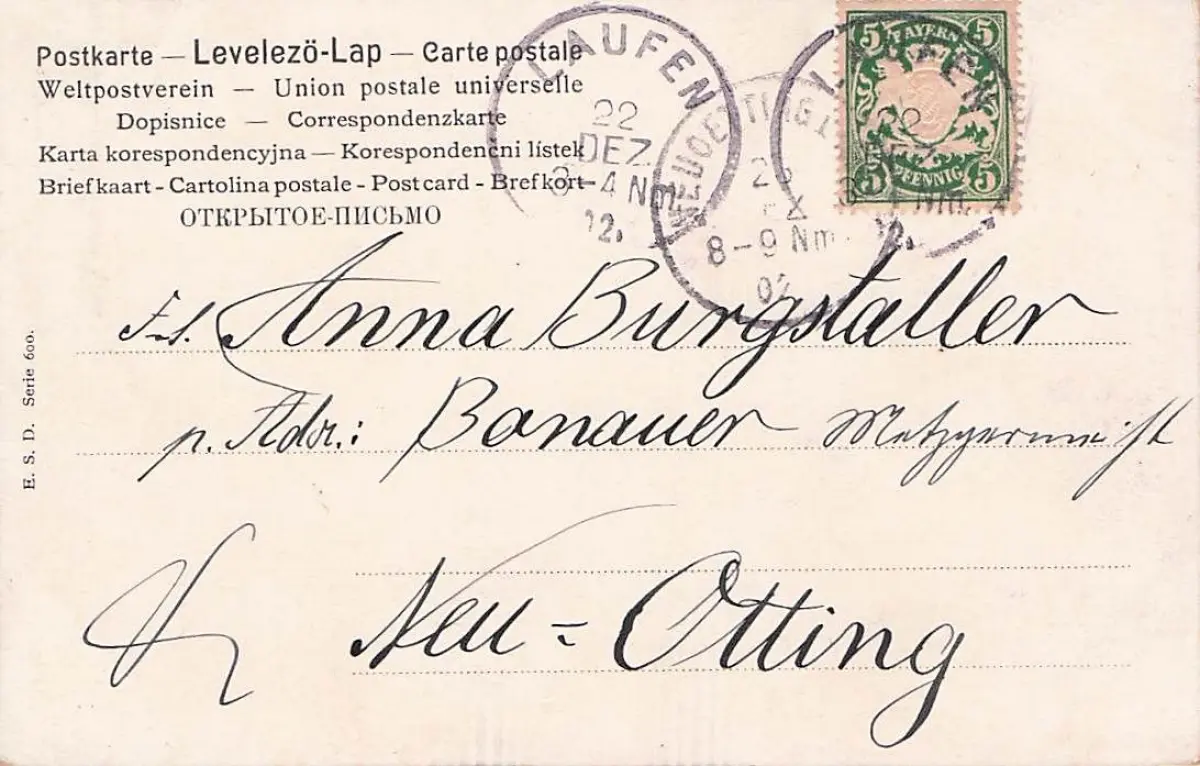 Postkarte — Levelező-Lap — Carte postale
Weltpostverein — Union postale universelle
Dopisnice — Correspondenzkarte
Karta korespondencyjna — Korespondenčni listek
Briefkaart - Cartolina postale - Post card - Brefkort
ОТКРЫТОЕ-ПИСЬМО
LAUFEN
22
DEZ
3-4 Nm
02.
8-9 Nm.
02
BAYERN
5 5
PFENNIG
5 5
E. S. D. Serie 600.
Frl. Anna Burgstaller
p. Adr.: Banauer Metzgermeist
Neu = Otting